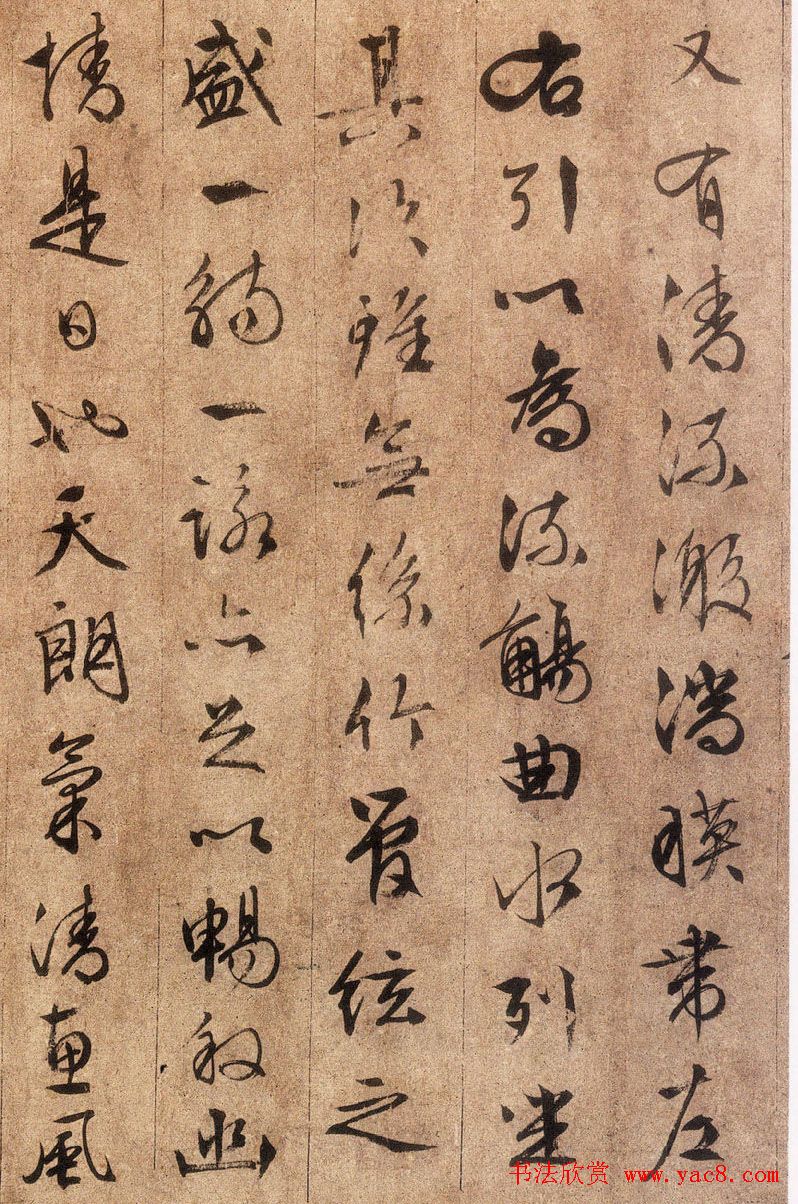 又有清流激湍暎帶左
右引以為流觴曲水列坐
其次雖無絲竹管絃之
盛一觴一詠亦足以暢敘幽
情是日也天朗氣清惠風
书法欣赏 www.yac8.com